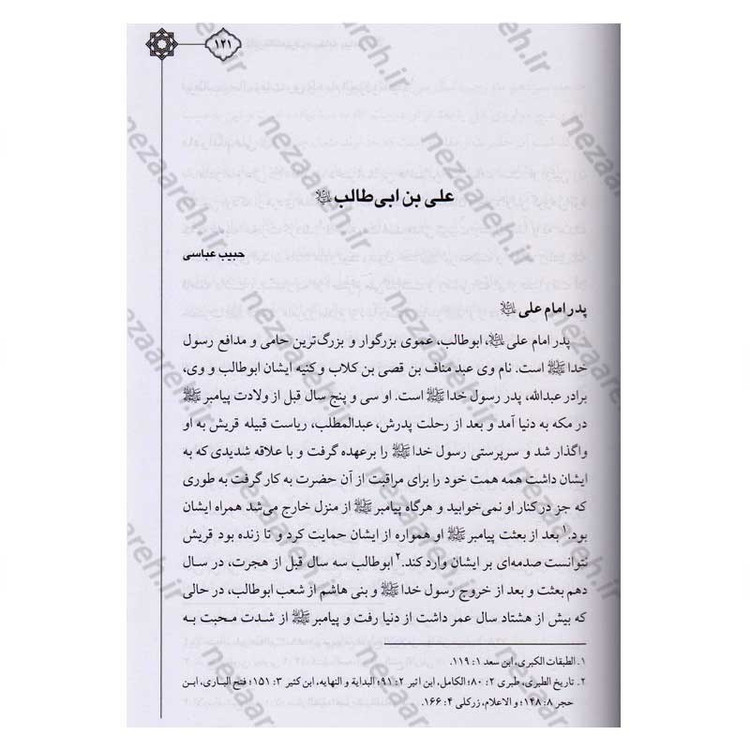 ۱۲۱
علی بن ابی‌طالب علیه‌السلام
حبیب عباسی
پدر امام علی علیه‌السلام
پدر امام علی علیه‌السلام، ابوطالب، عموی بزرگوار و بزرگ‌ترین حامی و مدافع رسول
خدا ﷺ است. نام وی عبد مناف بن قصی بن کلاب و کنیه ایشان ابوطالب و وی،
برادر عبدالله، پدر رسول خدا ﷺ است. او سی و پنج سال قبل از ولادت پیامبر ﷺ
در مکه به دنیا آمد و بعد از رحلت پدرش، عبدالمطلب، ریاست قبیله قریش به او
واگذار شد و سرپرستی رسول خدا ﷺ را برعهده گرفت و با علاقه شدیدی که به
ایشان داشت همه همت خود را برای مراقبت از آن حضرت به کار گرفت به طوری
که جز در کنار او نمی‌خوابید و هرگاه پیامبر ﷺ از منزل خارج می‌شد همراه ایشان
بود.۱ بعد از بعثت پیامبر ﷺ او همواره از ایشان حمایت کرد و تا زنده بود قریش
نتوانست صدمه‌ای بر ایشان وارد کند.۲ ابوطالب سه سال قبل از هجرت، در سال
دهم بعثت و بعد از خروج رسول خدا ﷺ و بنی هاشم از شعب ابوطالب، در حالی
که بیش از هشتاد سال عمر داشت از دنیا رفت و پیامبر ﷺ از شدت محبت به
۱. الطبقات الکبری، ابن سعد ۱: ۱۱۹.
۲. تاریخ الطبری، طبری ۲: ۸۰؛ الکامل، ابن اثیر ۲: ۹۱؛ البدایة و النهایه، ابن کثیر ۳: ۱۵۱؛ فتح الباری، ابن
حجر ۸: ۱۴۸؛ و الاعلام، زرکلی ۴: ۱۶۶.
nezaareh.ir